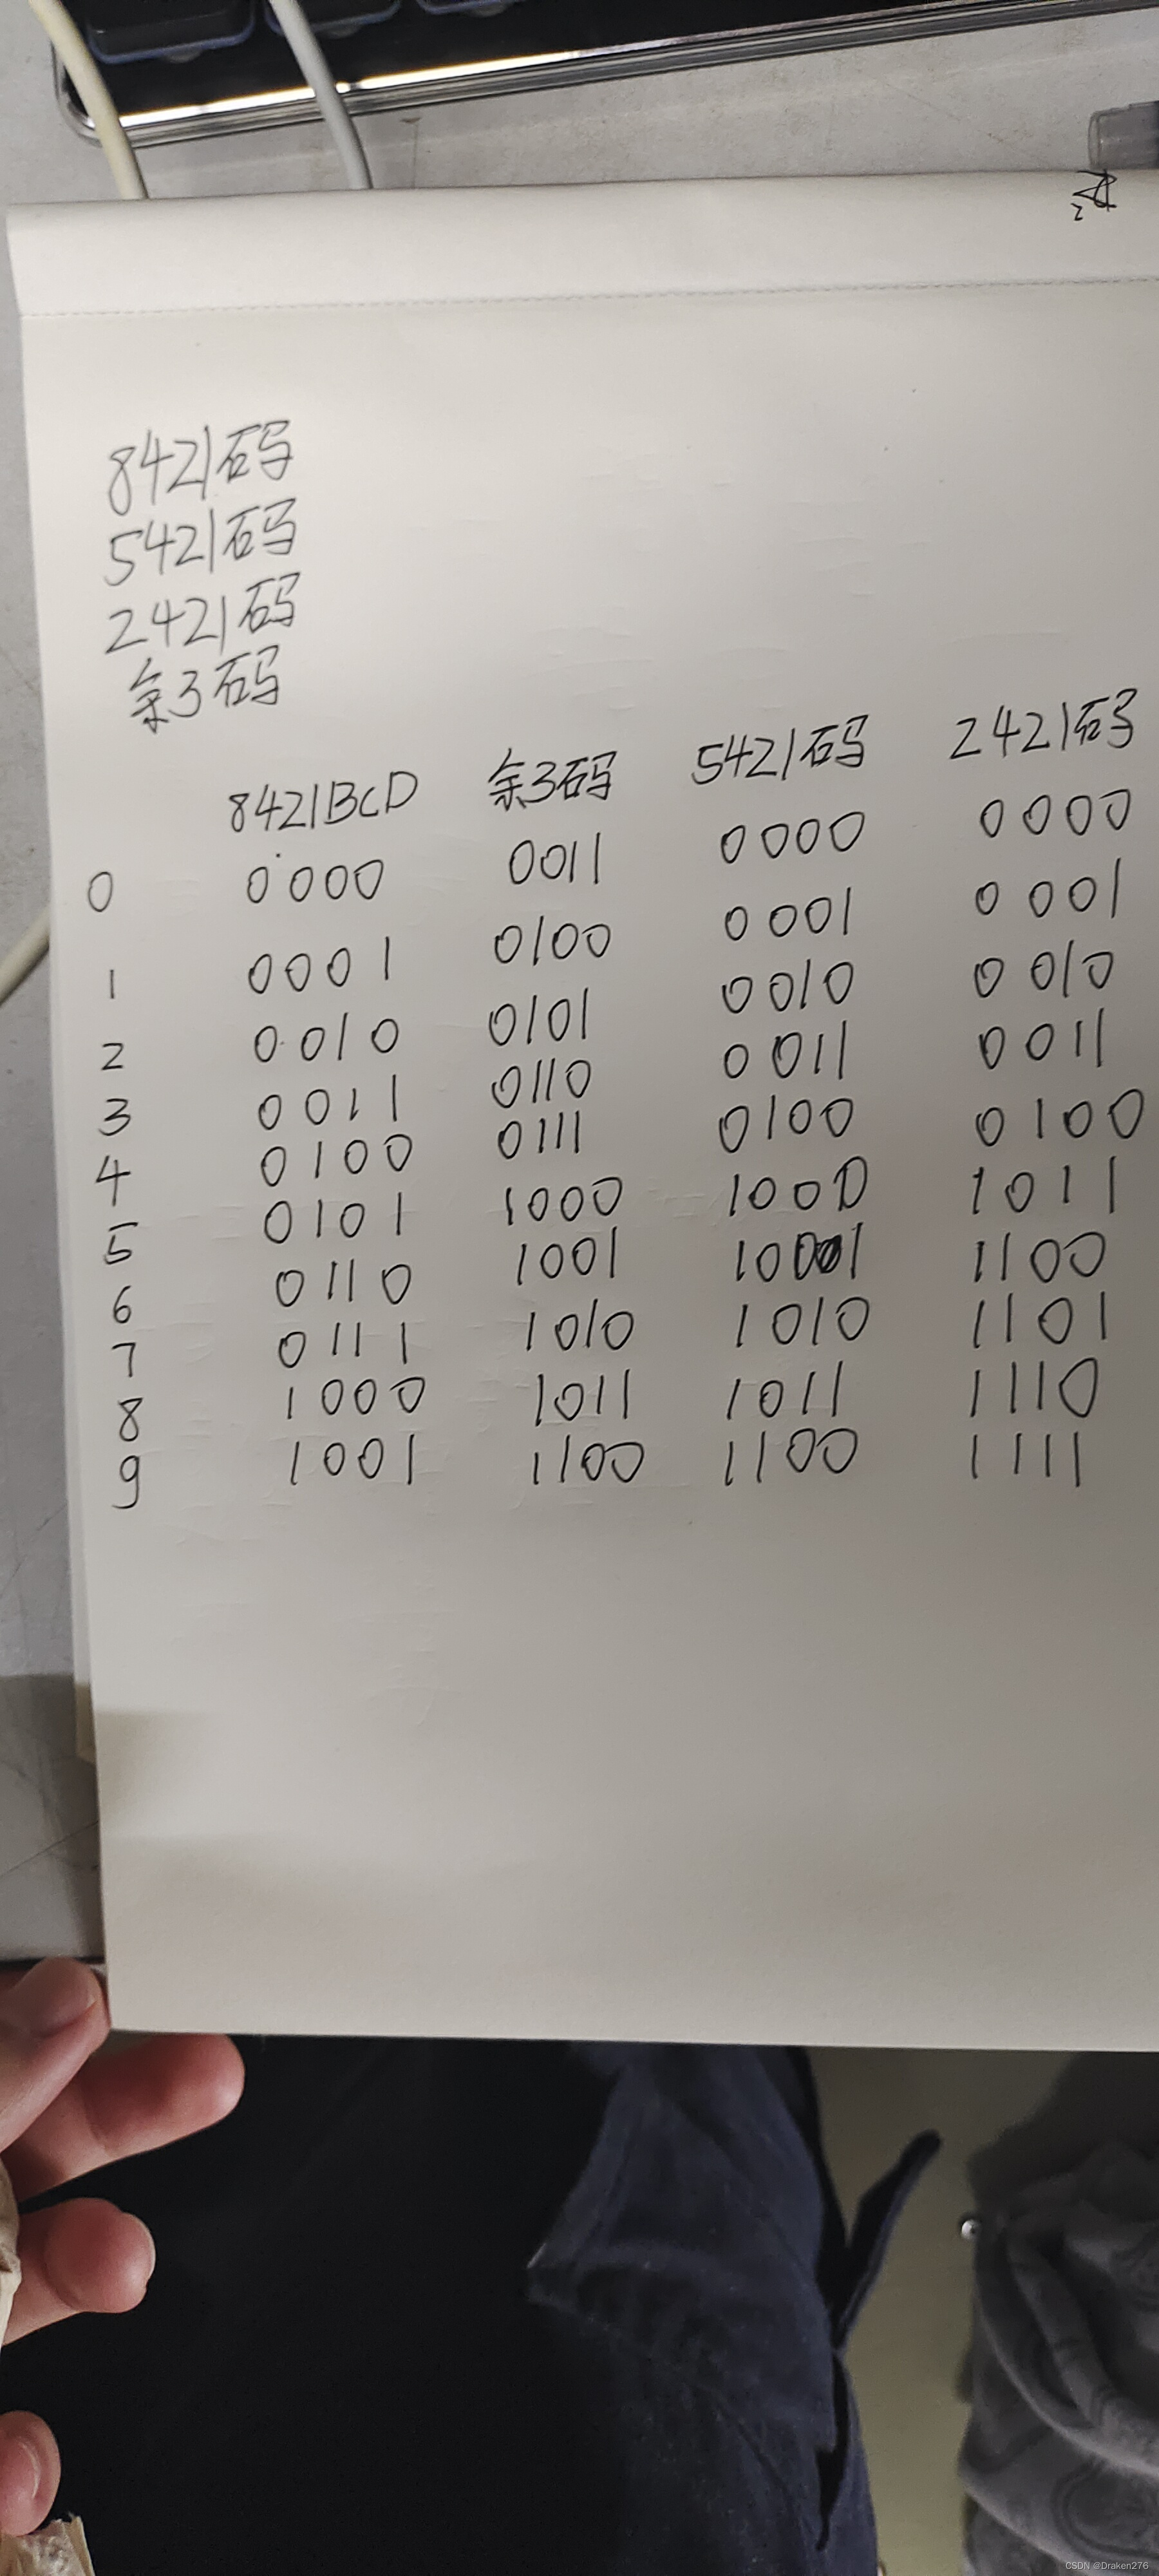 8421码
5421码
2421码
余3码
8421BCD 余3码 5421码 2421码
0 0000 0011 0000 0000
1 0001 0100 0001 0001
2 0010 0101 0010 0010
3 0011 0110 0011 0011
4 0100 0111 0100 0100
5 0101 1000 1000 1011
6 0110 1001 1001 1100
7 0111 1010 1010 1101
8 1000 1011 1011 1110
9 1001 1100 1100 1111
CSDN @Draken276